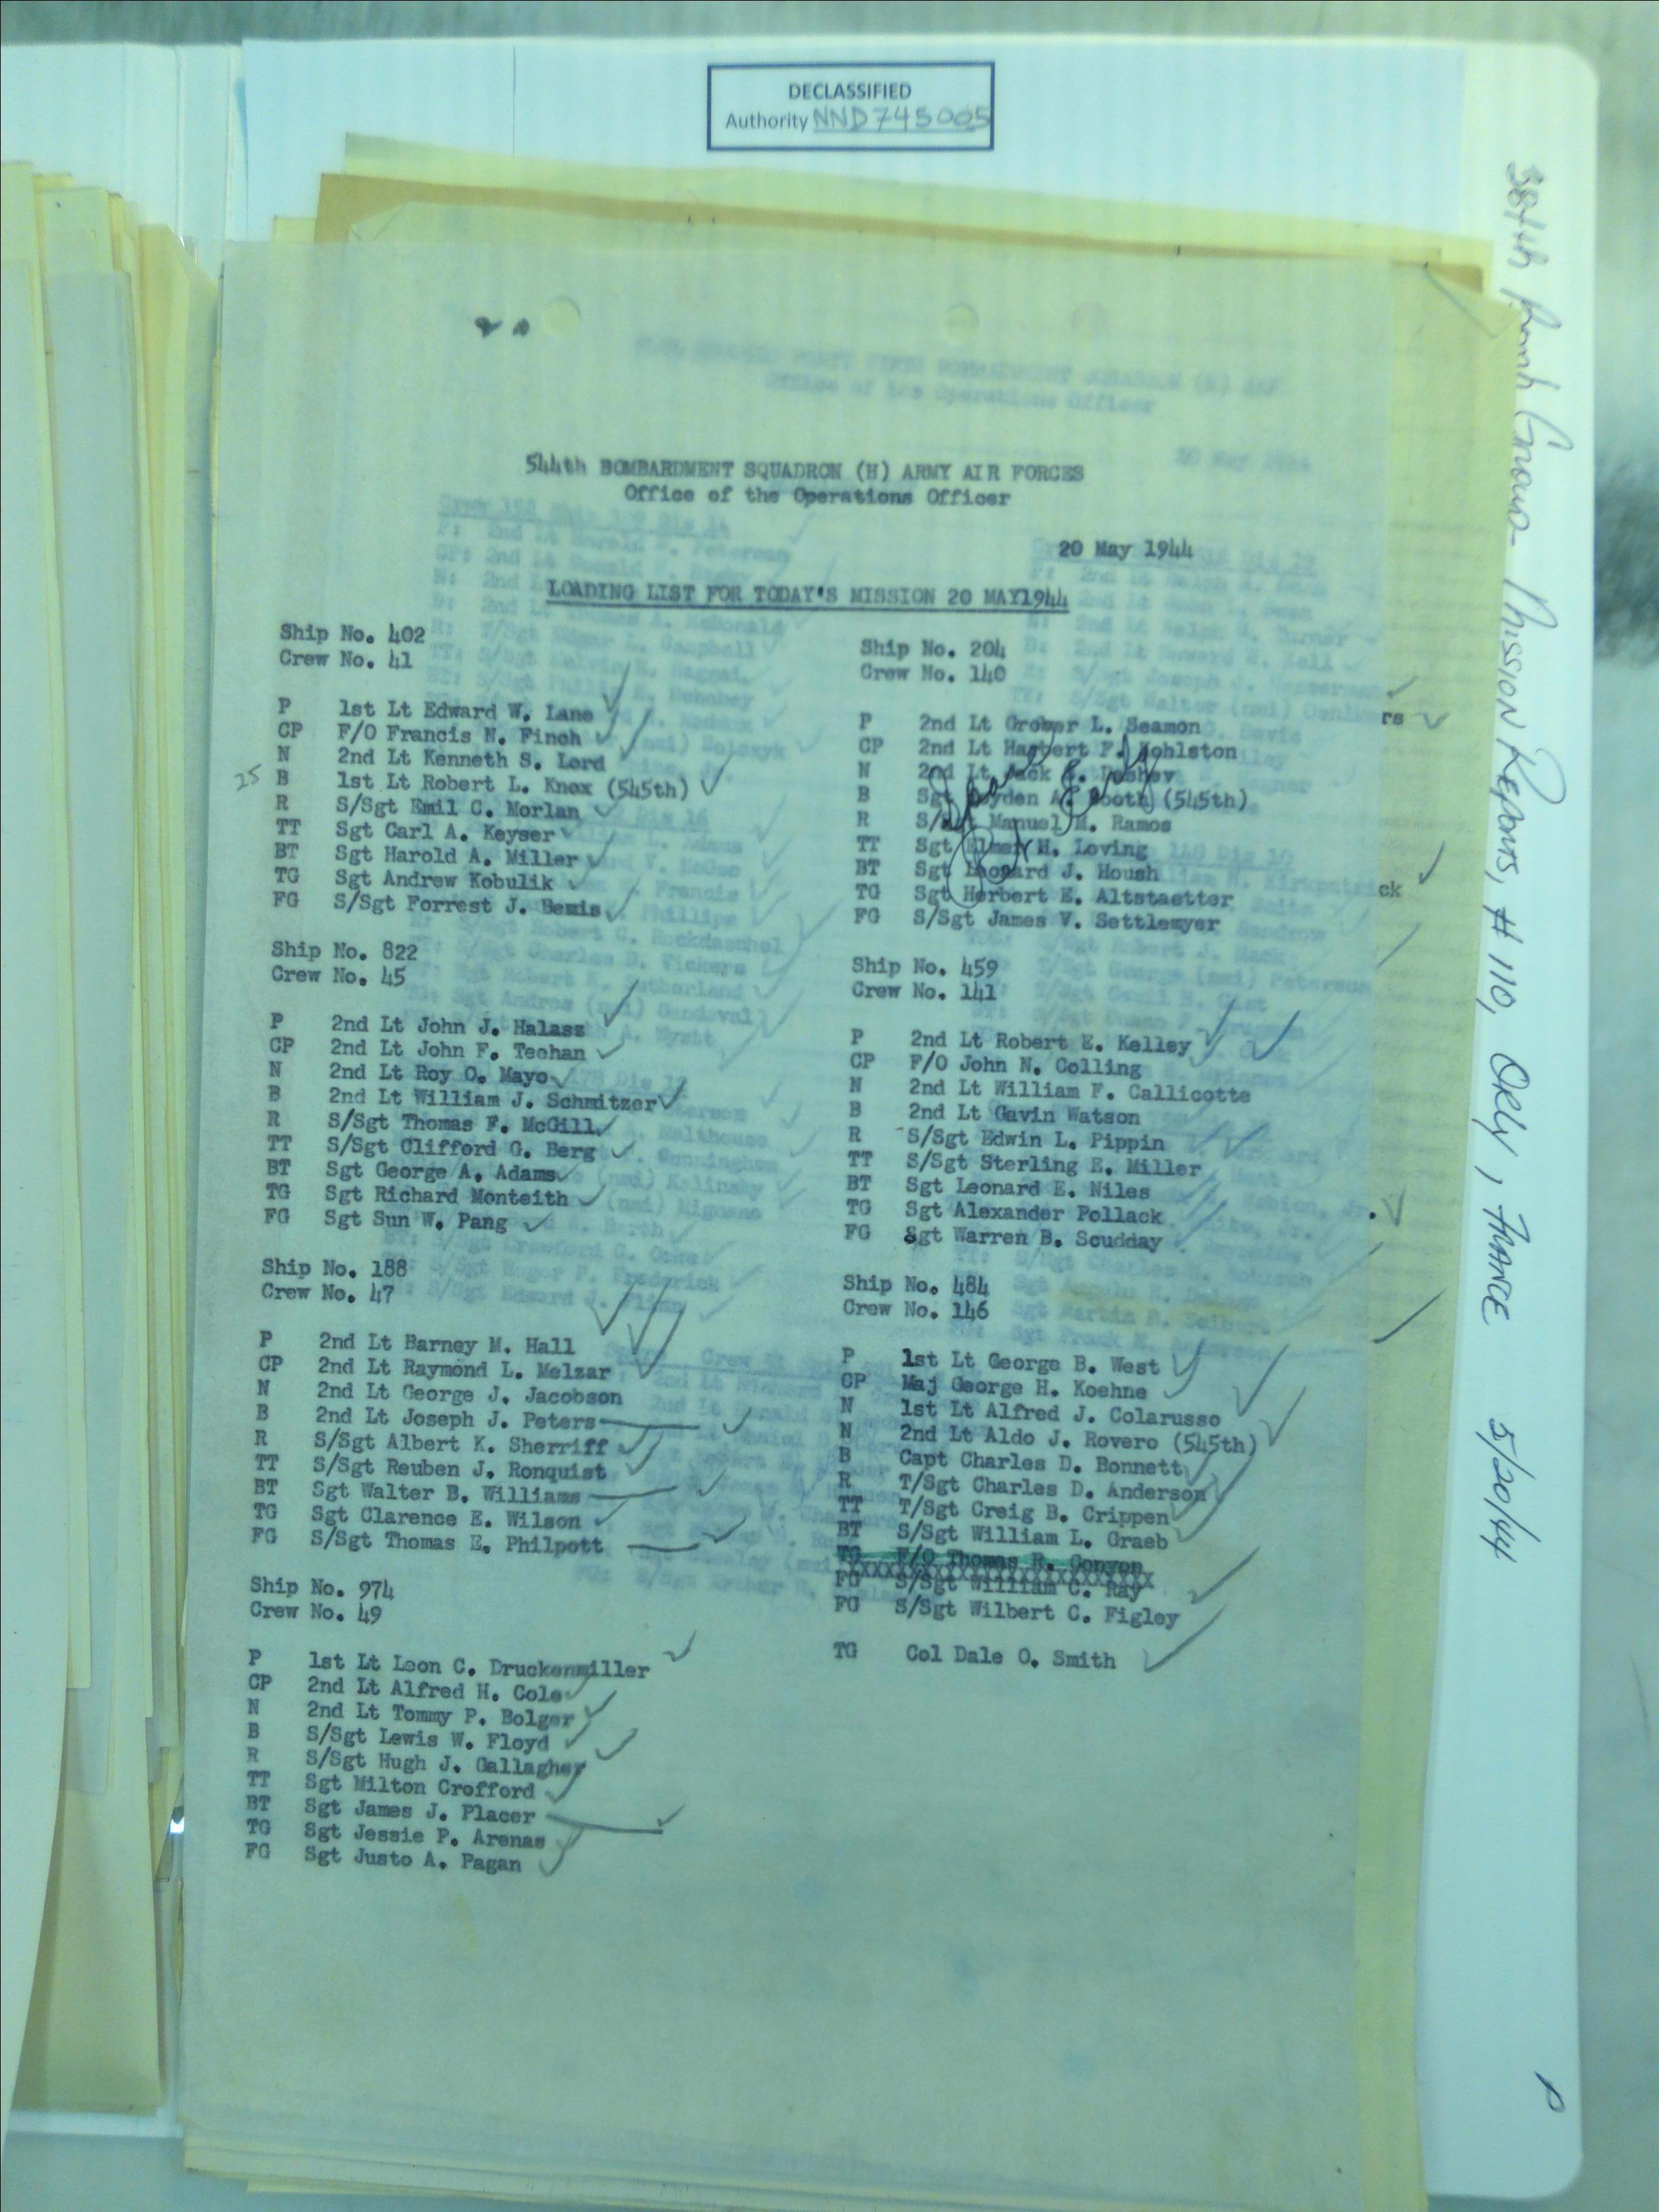 DECLASSIFIED
Authority NND745005
384th Bomb Group- Mission Reports, #110, Orly, FRANCE 5/20/44
544th BOMBARDMENT SQUADRON (H) ARMY AIR FORCES
Office of the Operations Officer
20 May 1944
LOADING LIST FOR TODAY'S MISSION 20 MAY1944
Ship No. 402
Crew No. 41
P 1st Lt Edward W. Lane
CP F/O Francis N. Finch
N 2nd Lt Kenneth S. Lord
25 B 1st Lt Robert L. Knox (545th)
R S/Sgt Emil C. Morlan
TT Sgt Carl A. Keyser
BT Sgt Harold A. Miller
TG Sgt Andrew Kobulik
FG S/Sgt Forrest J. Bemis
Ship No. 822
Crew No. 45
P 2nd Lt John J. Halasz
CP 2nd Lt John F. Teehan
N 2nd Lt Roy O. Mayo
B 2nd Lt William J. Schmitzer
R S/Sgt Thomas F. McGill
TT S/Sgt Clifford G. Berg
BT Sgt George A. Adams
TG Sgt Richard Monteith
FG Sgt Sun W. Pang
Ship No. 188
Crew No. 47
P 2nd Lt Barney M. Hall
CP 2nd Lt Raymond L. Melzar
N 2nd Lt George J. Jacobson
B 2nd Lt Joseph J. Peters
R S/Sgt Albert K. Sherriff
TT S/Sgt Reuben J. Ronquist
BT Sgt Walter B. Williams
TG Sgt Clarence E. Wilson
FG S/Sgt Thomas E. Philpott
Ship No. 974
Crew No. 49
P 1st Lt Leon C. Druckenmiller
CP 2nd Lt Alfred H. Cole
N 2nd Lt Tommy P. Bolger
B S/Sgt Lewis W. Floyd
R S/Sgt Hugh J. Gallagher
TT Sgt Milton Crofford
BT Sgt James J. Placer
TG Sgt Jessie P. Arenas
FG Sgt Justo A. Pagan
Ship No. 204
Crew No. 140
P 2nd Lt Grover L. Seamon
CP 2nd Lt Herbert F. Kohlston
N 2nd Lt Jack
B Sgt Boyden A. Booth (545th)
R S/Sgt Manuel M. Ramos
TT Sgt Elmer H. Loving
BT Sgt Leonard J. Housh
TG Sgt Herbert E. Altstaetter
FG S/Sgt James V. Settlemyer
Ship No. 459
Crew No. 141
P 2nd Lt Robert E. Kelley
CP F/O John N. Colling
N 2nd Lt William F. Callicotte
B 2nd Lt Gavin Watson
R S/Sgt Edwin L. Pippin
TT S/Sgt Sterling E. Miller
BT Sgt Leonard E. Niles
TG Sgt Alexander Pollack
FG Sgt Warren B. Scudday
Ship No. 484
Crew No. 146
P 1st Lt George B. West
CP Maj George H. Koehne
N 1st Lt Alfred J. Colarusso
N 2nd Lt Aldo J. Rovero (545th)
B Capt Charles D. Bonnett
R T/Sgt Charles D. Anderson
TT T/Sgt Creig B. Crippen
BT S/Sgt William L. Graeb
TG F/O Thomas R. Conyon
FG S/Sgt William C. Ray
FG S/Sgt Wilbert C. Figley
TG Col Dale O. Smith